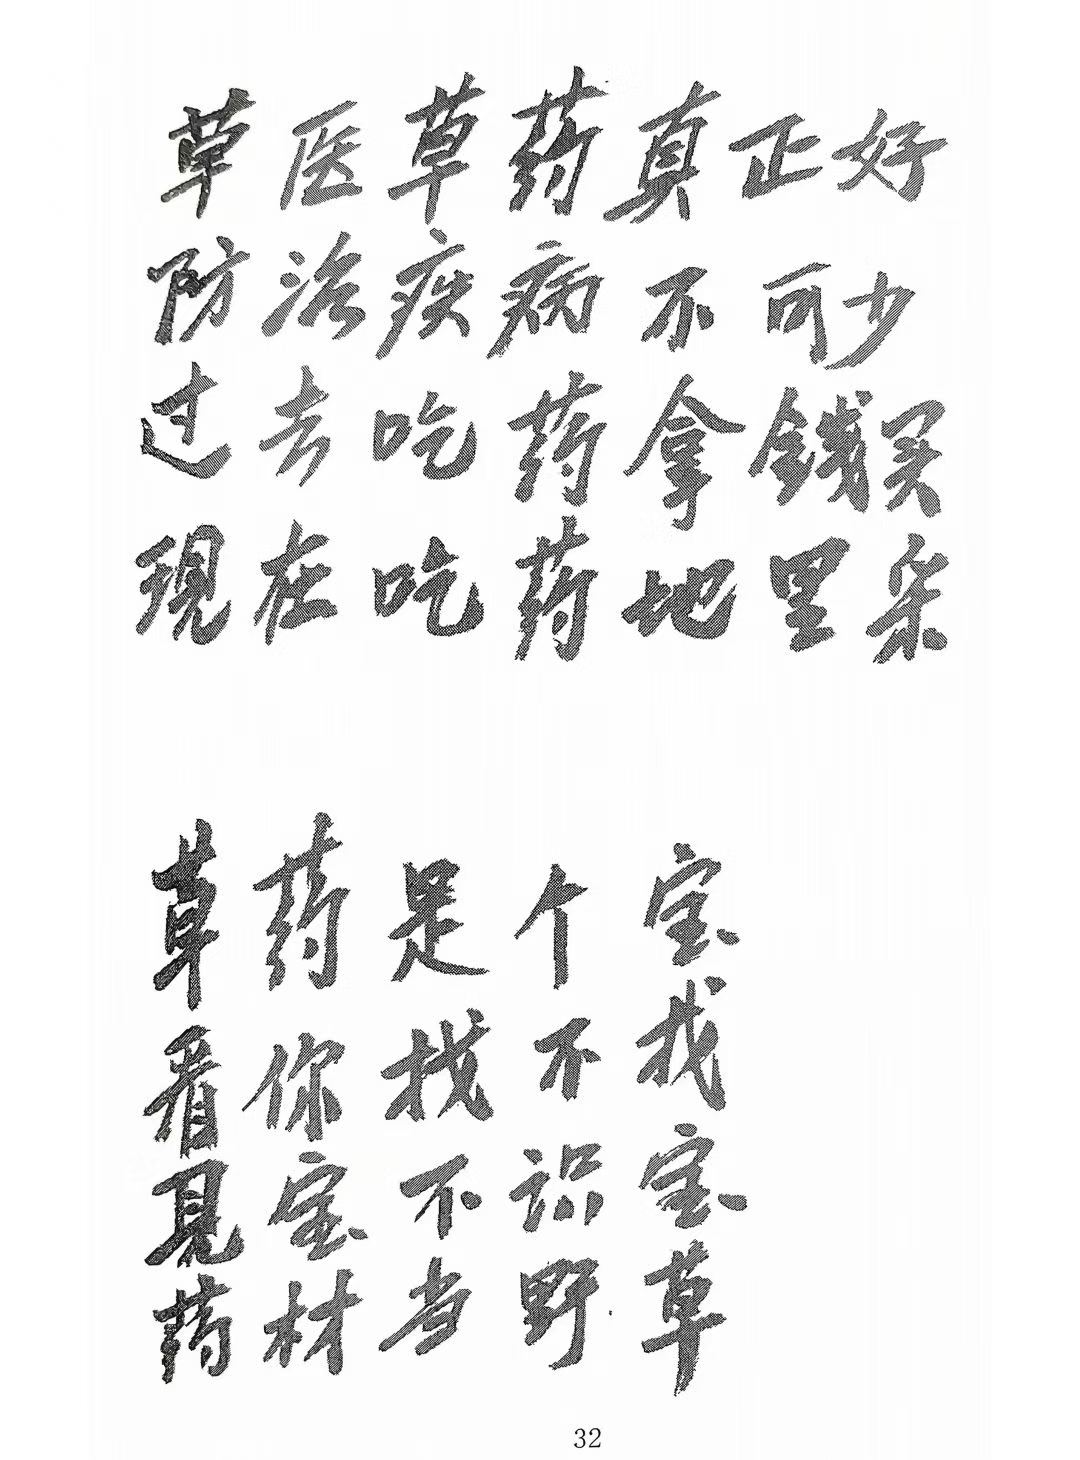 草医草药真正好
防治疾病不可少
过去吃药拿钱买
现在吃药地里采
草药是个宝
看你找不找
见宝不识宝
药材当野草
32